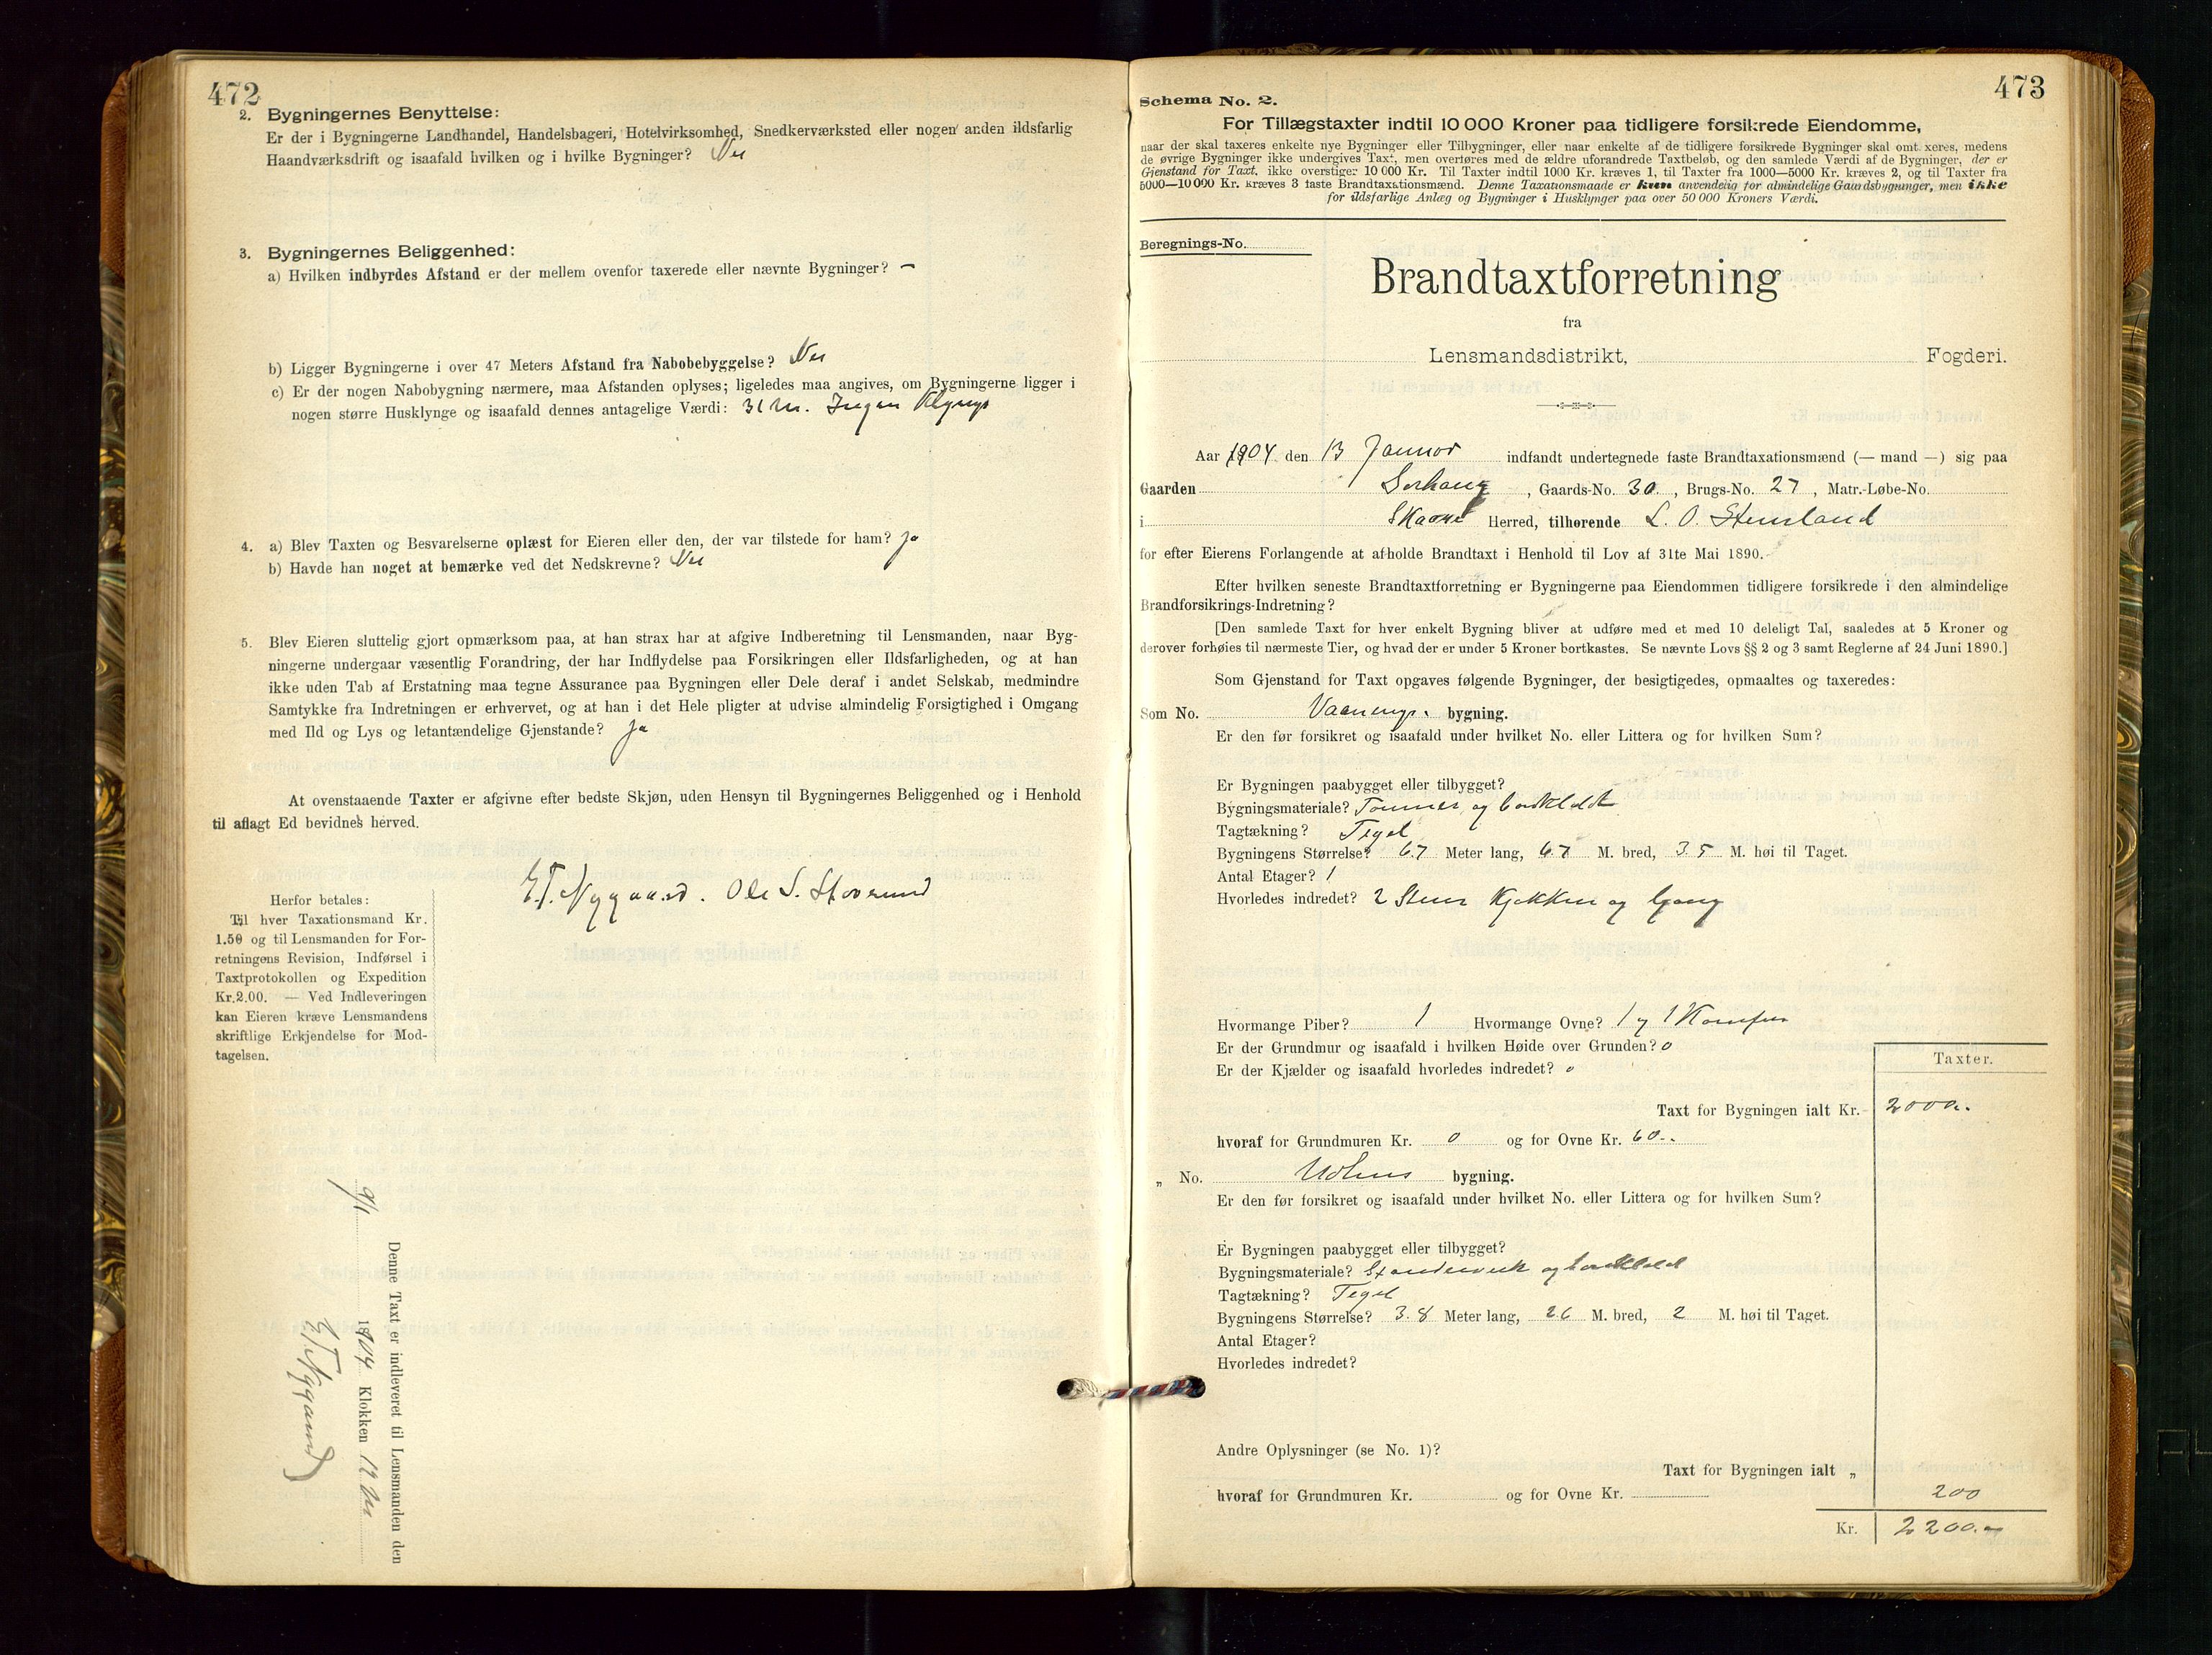 472
2. Bygningernes Benyttelse:
Er der i Bygningerne Landhandel, Handelsbageri, Hotelvirksomhed, Snedkerværksted eller nogen anden ildsfarlig
Haandværksdrift og isaafald hvilken og i hvilke Bygninger? Nei
3. Bygningernes Beliggenhed:
a) Hvilken indbyrdes Afstand er der mellem ovenfor taxerede eller nævnte Bygninger? –
b) Ligger Bygningerne i over 47 Meters Afstand fra Nabobebyggelse? Nei
c) Er der nogen Nabobygning nærmere, maa Afstanden oplyses; ligeledes maa angives, om Bygningerne ligger i
nogen større Husklynge og isaafald dennes antagelige Værdi: 31 m. Ingen Klynge
4. a) Blev Taxten og Besvarelserne oplæst for Eieren eller den, der var tilstede for ham? Ja
b) Havde han noget at bemærke ved det Nedskrevne? Nei
5. Blev Eieren sluttelig gjort opmærksom paa, at han strax har at afgive Indberetning til Lensmanden, naar Byg-
ningerne undergaar væsentlig Forandring, der har Indflydelse paa Forsikringen eller Ildsfarligheden, og at han
ikke uden Tab af Erstatning maa tegne Assurance paa Bygningen eller Dele deraf i andet Selskab, medmindre
Samtykke fra Indretningen er erhvervet, og at han i det Hele pligter at udvise almindelig Forsigtighed i Omgang
med Ild og Lys og letantændelige Gjenstande? Ja
At ovenstaaende Taxter er afgivne efter bedste Skjøn, uden Hensyn til Bygningernes Beliggenhed og i Henhold
til aflagt Ed bevidnes herved.
E. T. Nygaard. Ole S.
Herfor betales:
Til hver Taxationsmand Kr.
1.50 og til Lensmanden for For-
retningens Revision, Indførsel i
Taxtprotokollen og Expedition
Kr. 2.00. — Ved Indleveringen
kan Eieren kræve Lensmandens
skriftlige Erkjendelse for Mod-
tagelsen.
Denne Taxt er indleveret til Lensmanden den
1904 Klokken 12
E. T. Nygaard
473
Schema No. 2.
For Tillægstaxter indtil 10 000 Kroner paa tidligere forsikrede Eiendomme,
naar der skal taxeres enkelte nye Bygninger eller Tilbygninger, eller naar enkelte af de tidligere forsikrede Bygninger skal omtaxeres, medens
de øvrige Bygninger ikke undergives Taxt, men overføres med de ældre uforandrede Taxtbeløb, og den samlede Værdi af de Bygninger, der er
Gjenstand for Taxt, ikke overstiger 10 000 Kr. Til Taxter indtil 1000 Kr. kræves 1, til Taxter fra 1000—5000 Kr. kræves 2, og til Taxter fra
5000—10 000 Kr. kræves 3 faste Brandtaxationsmænd. Denne Taxationsmaade er kun anvendelig for almindelige Gaardsbygninger, men ikke
for ildsfarlige Anlæg og Bygninger i Husklynger paa over 50 000 Kroners Værdi.
Beregnings-No.
Brandtaxtforretning
fra
Lensmandsdistrikt, Fogderi.
Aar 1904 den 13 Januar indfandt undertegnede faste Brandtaxationsmænd (— mand —) sig paa
Gaarden Sørhaug, Gaards-No. 30, Brugs-No. 27, Matr.-Løbe-No.
i Skaare Herred, tilhørende L. O. Stensland
for efter Eierens Forlangende at afholde Brandtaxt i Henhold til Lov af 31te Mai 1890.
Efter hvilken seneste Brandtaxtforretning er Bygningerne paa Eiendommen tidligere forsikrede i den almindelige
Brandforsikrings-Indretning?
[Den samlede Taxt for hver enkelt Bygning bliver at udføre med et med 10 deleligt Tal, saaledes at 5 Kroner og
derover forhøies til nærmeste Tier, og hvad der er under 5 Kroner bortkastes. Se nævnte Lovs §§ 2 og 3 samt Reglerne af 24 Juni 1890.]
Som Gjenstand for Taxt opgaves følgende Bygninger, der besigtigedes, opmaaltes og taxeredes:
Som No. Vaanings. bygning.
Er den før forsikret og isaafald under hvilket No. eller Littera og for hvilken Sum?
Er Bygningen paabygget eller tilbygget?
Bygningsmateriale? Tømmer og bordklædt
Tagtækning? Tegel
Bygningens Størrelse? 6.7 Meter lang, 6.7 M. bred, 3.5 M. høi til Taget.
Antal Etager? 1
Hvorledes indredet? 2 Stuer Kjøkken og Gang
Hvormange Piber? 1 Hvormange Ovne? 1 og 1 Komfur
Er der Grundmur og isaafald i hvilken Høide over Grunden? 0
Er der Kjælder og isaafald hvorledes indredet? 0
Taxter.
Taxt for Bygningen ialt Kr. 2000.-
hvoraf for Grundmuren Kr. 0 og for Ovne Kr. 60.-
„ No. Udhus bygning.
Er den før forsikret og isaafald under hvilket No. eller Littera og for hvilken Sum?
Er Bygningen paabygget eller tilbygget?
Bygningsmateriale? Standerverk og bordklædt
Tagtækning? Tegel
Bygningens Størrelse? 3.8 Meter lang, 2.6 M. bred, 2 M. høi til Taget.
Antal Etager?
Hvorledes indredet?
Andre Oplysninger (se No. 1)?
Taxt for Bygningen ialt „ 200
hvoraf for Grundmuren Kr. og for Ovne Kr.
Kr. 2200.-